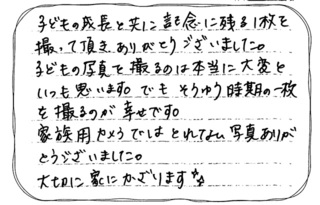 子どもの成長と共に記念に残る1枚を
撮って頂きありがとうございました。
子どもの写真を撮るのは本当に大変と
いつも思います。でもそうゆう時期の一枚
を撮るのが幸せです。
家族用カメラではとれない写真ありが
とうございました。
大切に家にかざります